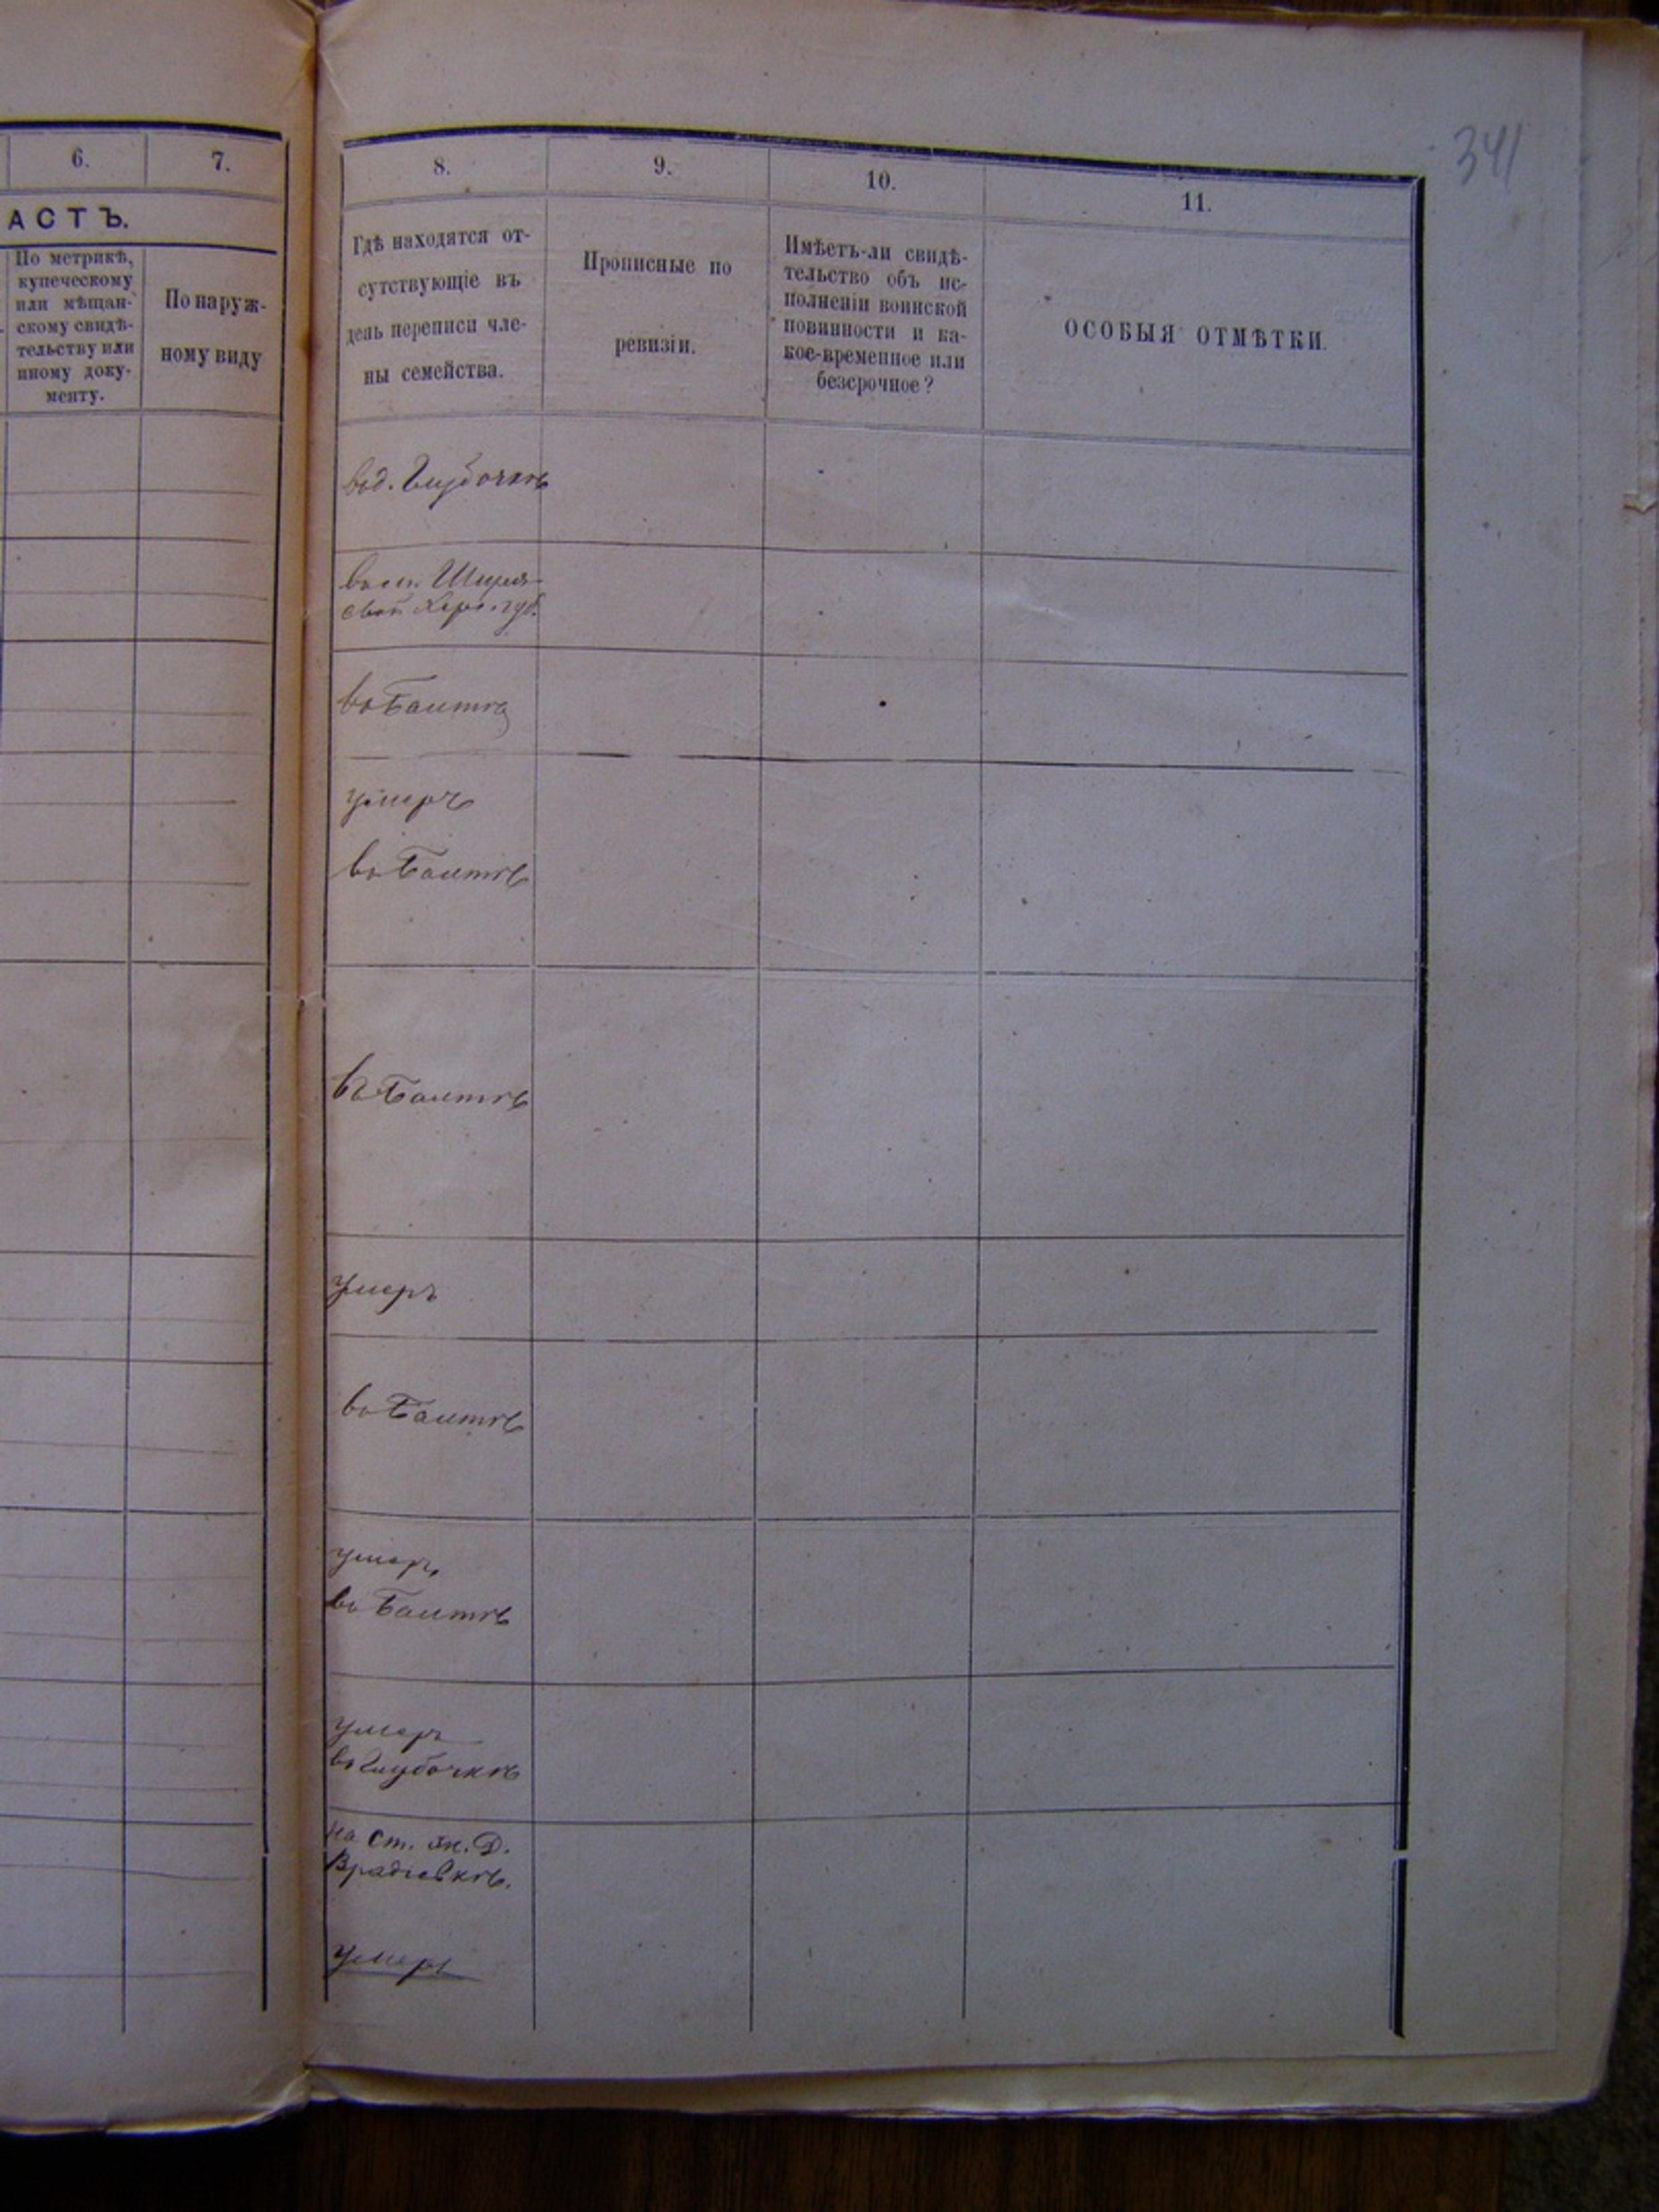 341
6.
7.
АСТЪ.
По метрикѣ,
купеческому
или мѣщан-
скому свидѣ-
тельству или
иному доку-
менту.
По наруж-
ному виду
8.
9.
10.
11.
Гдѣ находятся от-
сутствующіе въ
день переписи чле-
ны семейства.
Прописные по
ревизіи.
Имѣетъ-ли свидѣ-
тельство объ ис-
полненіи воинской
повинности и ка-
кое-временное или
безсрочное?
ОСОБЫЯ ОТМѢТКИ.
в д. Глубочкѣ
въ м. Ширя-
евой Херс. губ.
въ Балтѣ
умеръ
въ Балтѣ
въ Балтѣ
умеръ
въ Балтѣ
умеръ
въ Балтѣ
умеръ
въ Глубочкѣ
на ст. ж. Д.
Врадіевкѣ.
умеръ